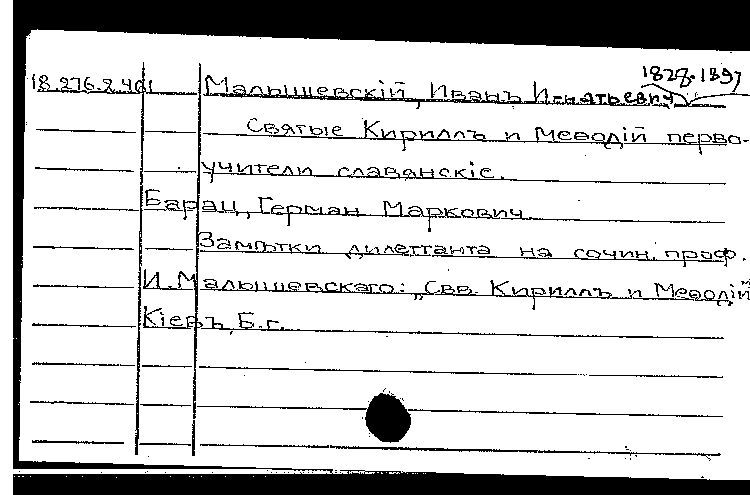 1828-1897
18.276.2.401 Малышевскій, Иванъ Игнатьевич
Святые Кириллъ и Меѳодій перво-
учители славянскіе.
Барац, Герман Маркович
Замѣтки дилеттанта на сочин. проф.
И. Малышевскаго: „Свв. Кириллъ и Меѳодій
Кіевъ, Б.г.